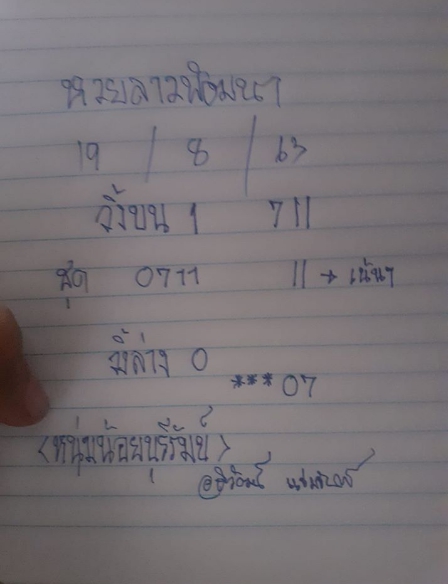 หวยลาวพัฒนา
19 / 8 / 63
วิ่งบน 1 711
ชุด 0711 11 → เน้นๆ
วิ่งล่าง 0
*** 07
<หนุ่มน้อยบุรีรัมย์>